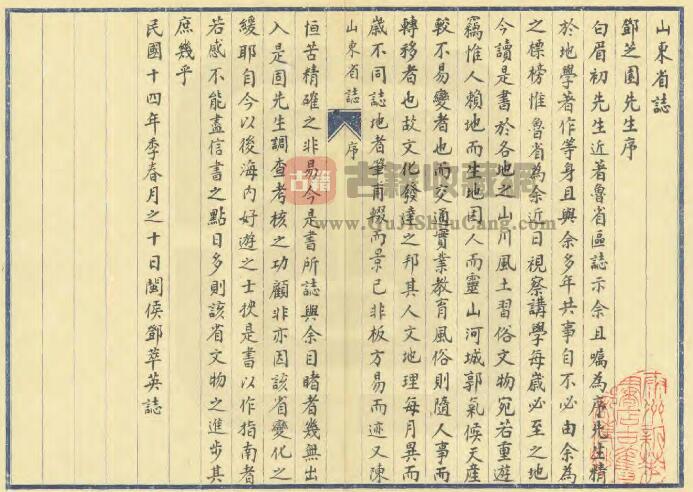 山東省誌
鄧芝園先生序
白眉初先生近著魯省區誌示余且囑為序先生精
於地學著作等身且與余多年共事自不必由余為
之標榜惟魯省為余近日視察講學每歲必至之地
今讀是書於各地之山川風土習俗文物宛若重遊
竊惟人賴地而生地因人而靈山河城郭氣候天產
較不易變者也而交通實業教育風俗則隨人事而
轉移者也故文化發達之邦其人文地理每月異而
歲不同誌地者筆甫輟而景已非板方易而迹又陳
山東省誌 序
恒苦精確之非易今是書所誌與余目睹者幾無出
入是固先生調查考核之功顧非亦因該省變化之
緩耶自今以後海內好遊之士挾是書以作指南者
若感不能盡信書之點日多則該省文物之進步其
庶幾乎
民國十四年季春月之十日閩侯鄧萃英誌
古籍
古籍收藏網
www.GuJiShuCang.com